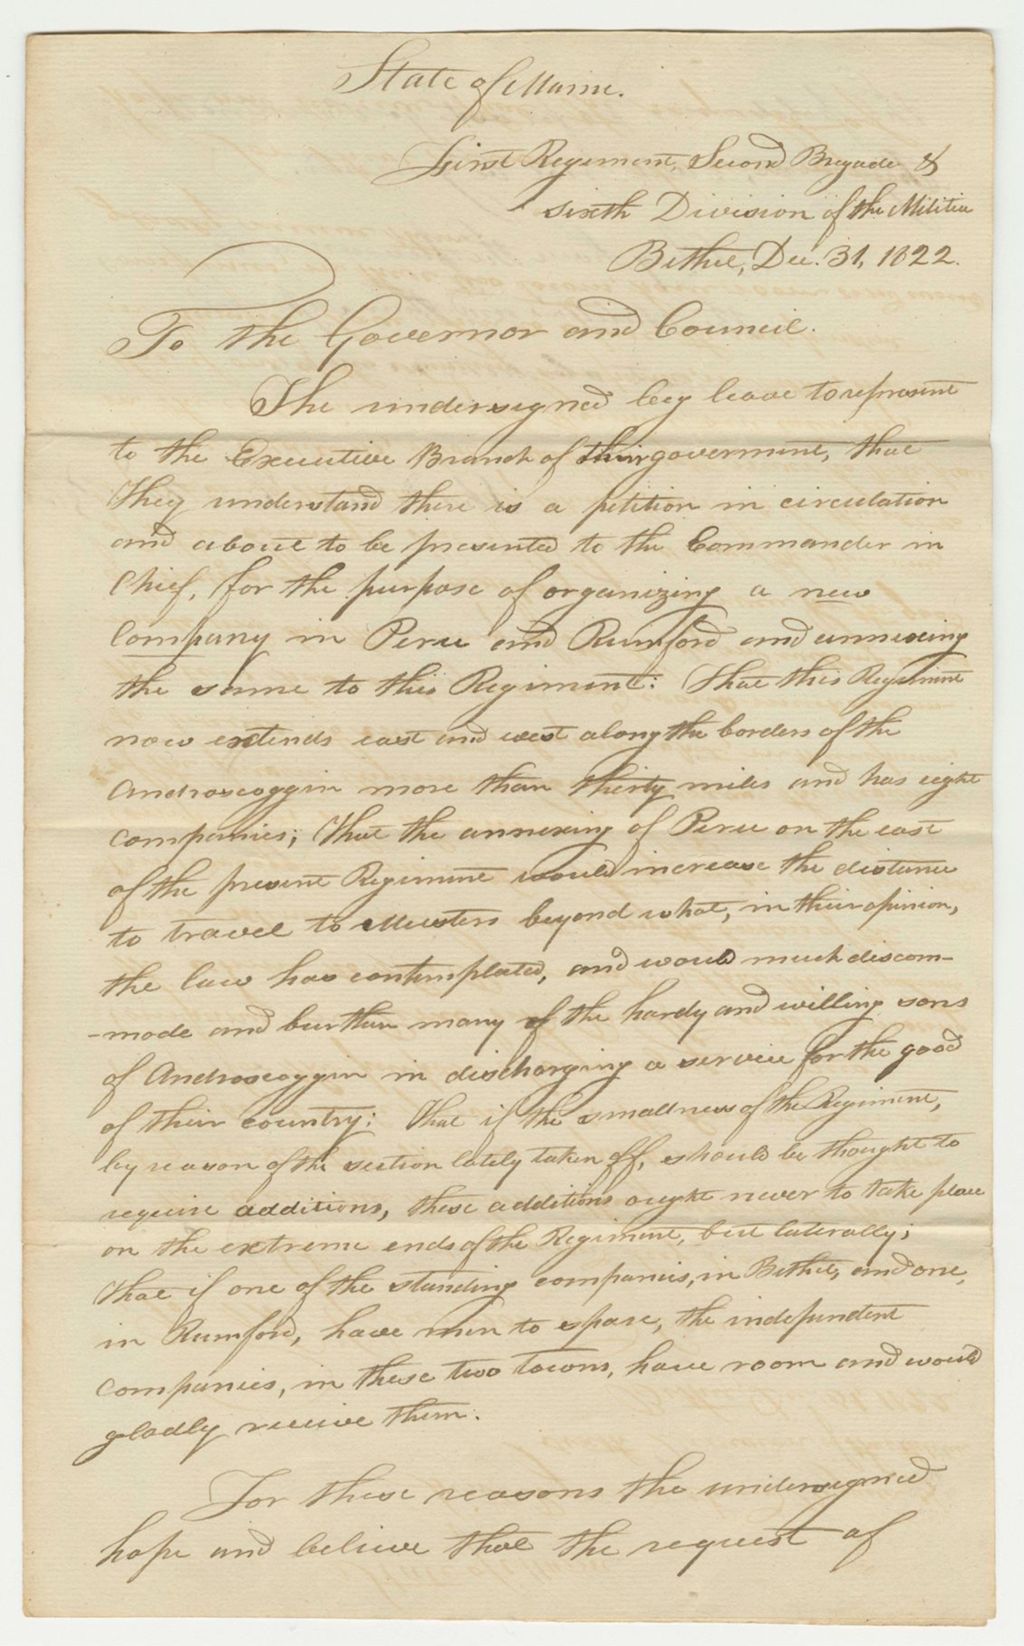 State of Maine.
First Regiment, Second Brigade &
sixth Division of the Militia
Bethel, Dec. 31, 1822.
To the Governor and Council.
The undersigned beg leave to represent
to the Executive Branch of their government, that
they understand there is a petition in circulation
and about to be presented to the Commander in
Chief, for the purpose of organizing a new
Company in Peru and Rumford and annexing
the same to this Regiment: That this Regiment
now extends east and west along the borders of the
Androscoggin more than thirty miles and has eight
companies; That the annexing of Peru on the east
of the present Regiment would increase the distance
to travel to Musters beyond what, in their opinion,
the law has contemplated, and would much discom-
-mode and burthen many of the hardy and willing sons
of Androscoggin in discharging a service for the good
of their country: That if the smallness of the Regiment,
by reason of the section lately taken off, should be thought to
require additions, these additions ought never to take place
on the extreme ends of the Regiment, but laterally;
That if one of the standing companies, in Bethel, and one,
in Rumford, have men to spare, the independent
companies, in these two towns, have room and would
gladly receive them.
For these reasons the undersigned
hope and believe that the request of